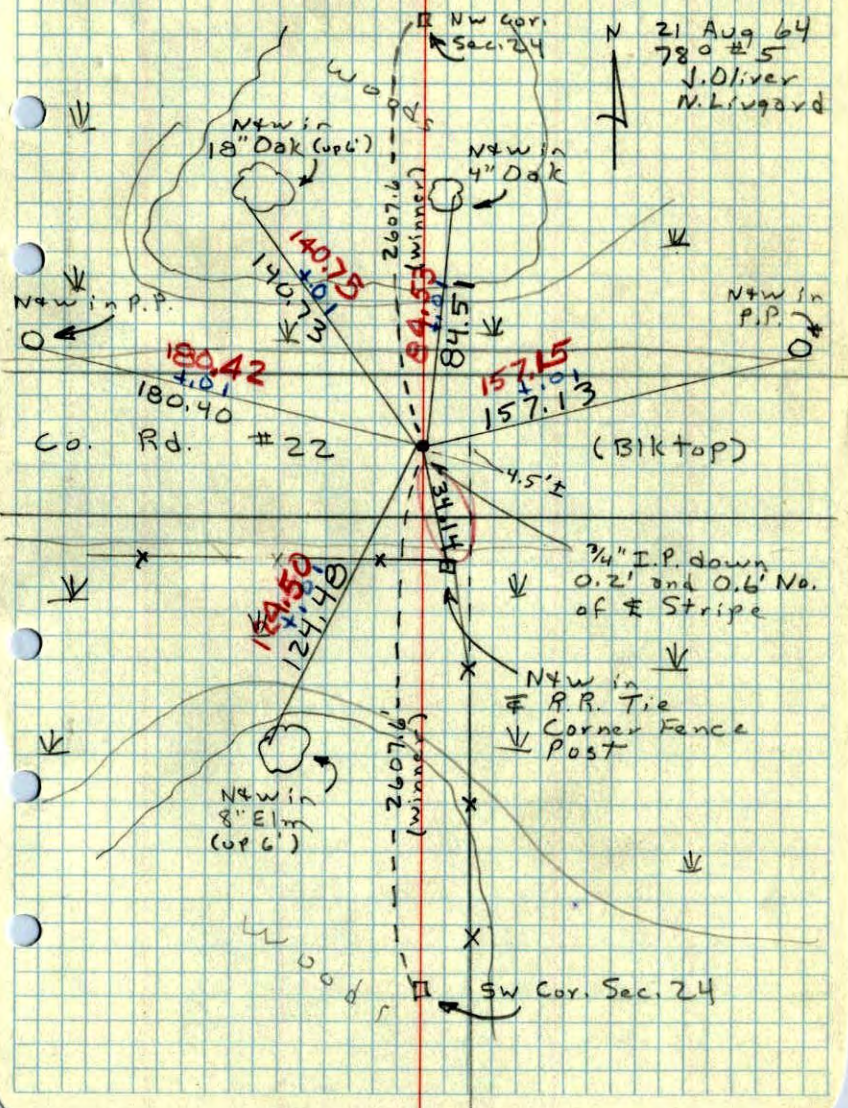 NW Cor.
Sec. 24
N
21 Aug 64
78° #5
J. Oliver
N. Livgard
Woods
N&W in
18" Oak (up 6')
N&W in
4" Oak
2607.6'
(Winner)
140.75
+.01
140.73
84.53
+.01
84.51
N&W in P.P.
N&W in
P.P.
180.42
+.01
180.40
157.15
+.01
157.13
Co. Rd. #22
(Blktop)
4.5'±
34.14
3/4" I.P. down
0.2' and 0.6' No.
of ℄ Stripe
124.50
+.01
124.48
N&W in
℄ R.R. Tie
Corner Fence
Post
2607.6'
(Winner)
N&W in
8" Elm
(up 6')
Woods
SW Cor. Sec. 24